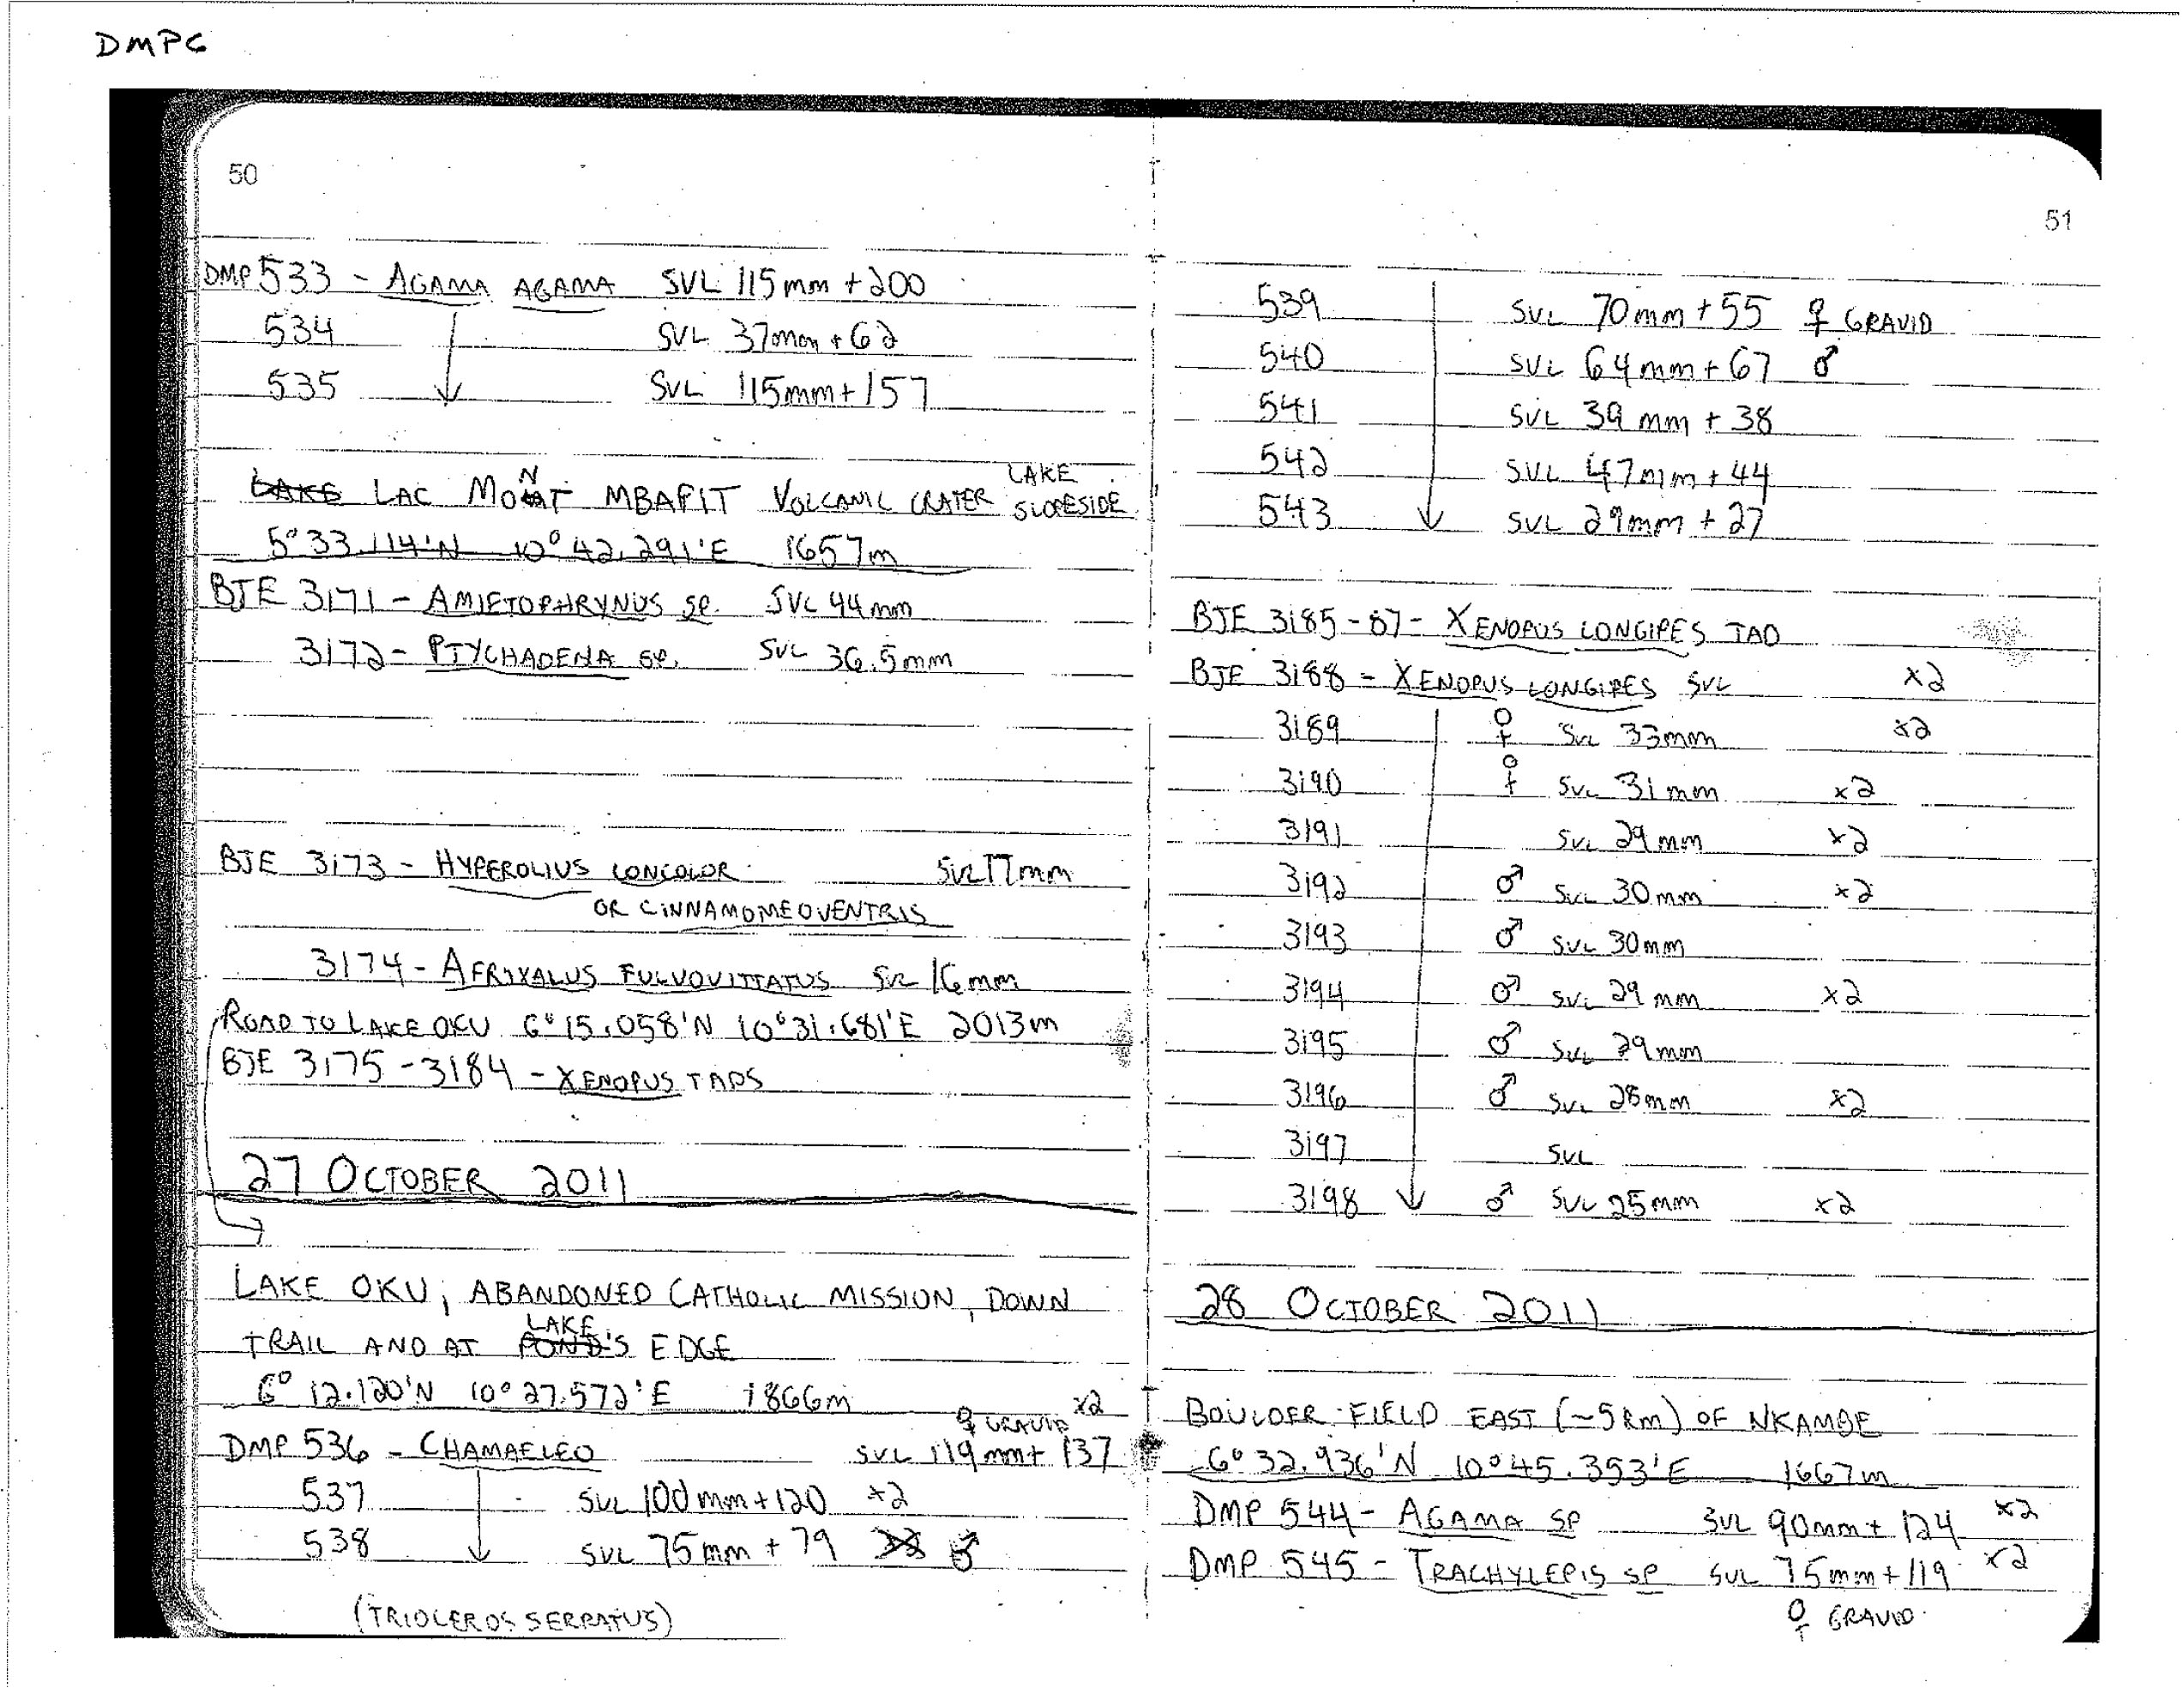 DMPG
50
DMP 533 - AGAMA AGAMA SVL 115mm + 200
534 SVL 37mm + 62
535 SVL 115mm + 157
LAKE
LAKE LAC MONT MBAPIT VOLCANIC CRATER SLOPESIDE
5°33.114'N 10°42.291'E 1657m
BJE 3171 - AMIETOPHRYNUS SP. SVL 44mm
3172 - PTYCHADENA SP. SVL 36.5mm
BJE 3173 - HYPEROLIUS CONCOLOR SVL 17mm
OR CINNAMOMEOVENTRIS
3174 - AFRIXALUS FULVOVITTATUS SVL 16mm
ROAD TO LAKE OKU 6°15.058'N 10°31.681'E 2013m
BJE 3175-3184 - XENOPUS TADS
27 OCTOBER 2011
LAKE OKU; ABANDONED CATHOLIC MISSION, DOWN
TRAIL AND AT POND'S LAKE EDGE
6° 12.120'N 10° 27.572'E 1866m
♀ GRAVID x2
DMP 536 - CHAMAELEO SVL 119mm + 137
537 SVL 100mm + 120 x2
538 SVL 75mm + 79 ♂
(TRIOCEROS SERRATUS)
51
539 SVL 70mm + 55 ♀ GRAVID
540 SVL 64mm + 67 ♂
541 SVL 39mm + 38
542 SVL 47mm + 44
543 SVL 29mm + 27
BJE 3185-87 - XENOPUS LONGIPES TAD
BJE 3188 - XENOPUS LONGIPES SVL x2
3189 ♀ SVL 33mm x2
3190 ♀ SVL 31mm x2
3191 SVL 29mm x2
3192 ♂ SVL 30mm x2
3193 ♂ SVL 30mm
3194 ♂ SVL 29mm x2
3195 ♂ SVL 29mm
3196 ♂ SVL 28mm x2
3197 SVL
3198 ♂ SVL 25mm x2
28 OCTOBER 2011
BOULDER FIELD EAST (~5km) OF NKAMBE
6° 32.936'N 10°45.353'E 1667m
DMP 544 - AGAMA SP SVL 90mm + 124 x2
DMP 545 - TRACHYLEPIS SP SVL 75mm + 119 x2
♀ GRAVID